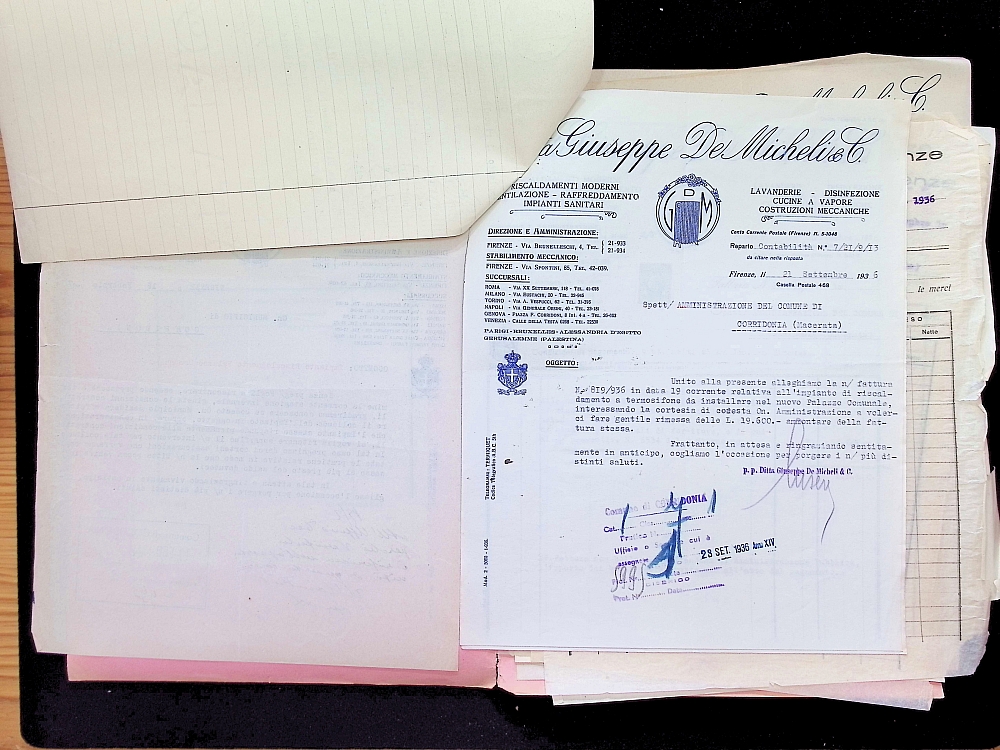 Giuseppe De Micheli & C.
RISCALDAMENTI MODERNI
VENTILAZIONE - RAFFREDDAMENTO
IMPIANTI SANITARI
GDM
LAVANDERIE - DISINFEZIONE
CUCINE A VAPORE
COSTRUZIONI MECCANICHE
DIREZIONE E AMMINISTRAZIONE:
FIRENZE - VIA BRUNELLESCHI, 4, TEL. 21-933
21-934
STABILIMENTO MECCANICO:
FIRENZE - VIA SPONTINI, 85, TEL. 42-039.
SUCCURSALI:
ROMA - VIA XX SETTEMBRE, 118 - TEL.
MILANO - VIA EUSTACHI, 20 - TEL.
TORINO - VIA A. VESPUCCI, 62 - TEL.
NAPOLI - VIA GENERALE ORSINI, 40 - TEL.
GENOVA - PIAZZA F. CORRIDONI, 8 int. 4 a - TEL.
VENEZIA - CALLE DELLA TESTA 6288 - TEL. 22531
PARIGI-BRUXELLES-ALESSANDRIA D'EGITTO
GERUSALEMME (PALESTINA)
Conto Corrente Postale (Firenze) N. 5-3048
Reparto Contabilità N.° 7/21/9/13
da citare nella risposta
Firenze, li 21 Settembre 1936
Casella Postale 468
Spett/ AMMINISTRAZIONE DEL COMUNE DI
CORRIDONIA (Macerata)
OGGETTO:
Unito alla presente alleghiamo la n/ fattura
N° 819/936 in data 19 corrente relativa all'impianto di riscal-
damento a termosifone da installare nel nuovo Palazzo Comunale,
interessando la cortesia di codesta On. Amministrazione a voler-
ci fare gentile rimessa delle L. 19.600.- ammontare della fat-
tura stessa.
Frattanto, in attesa e ringraziando sentita-
mente in anticipo, cogliamo l'occasione per porgere i n/ più di-
stinti saluti.
p. p. Ditta Giuseppe De Micheli & C.
Telegrammi: TERMIQUET
Comune di CORRIDONIA
Cat.
Ufficio o
28 SET. 1936 Anno XIV
5995
Prot. N° Data
nze
1936
le merci
Netto